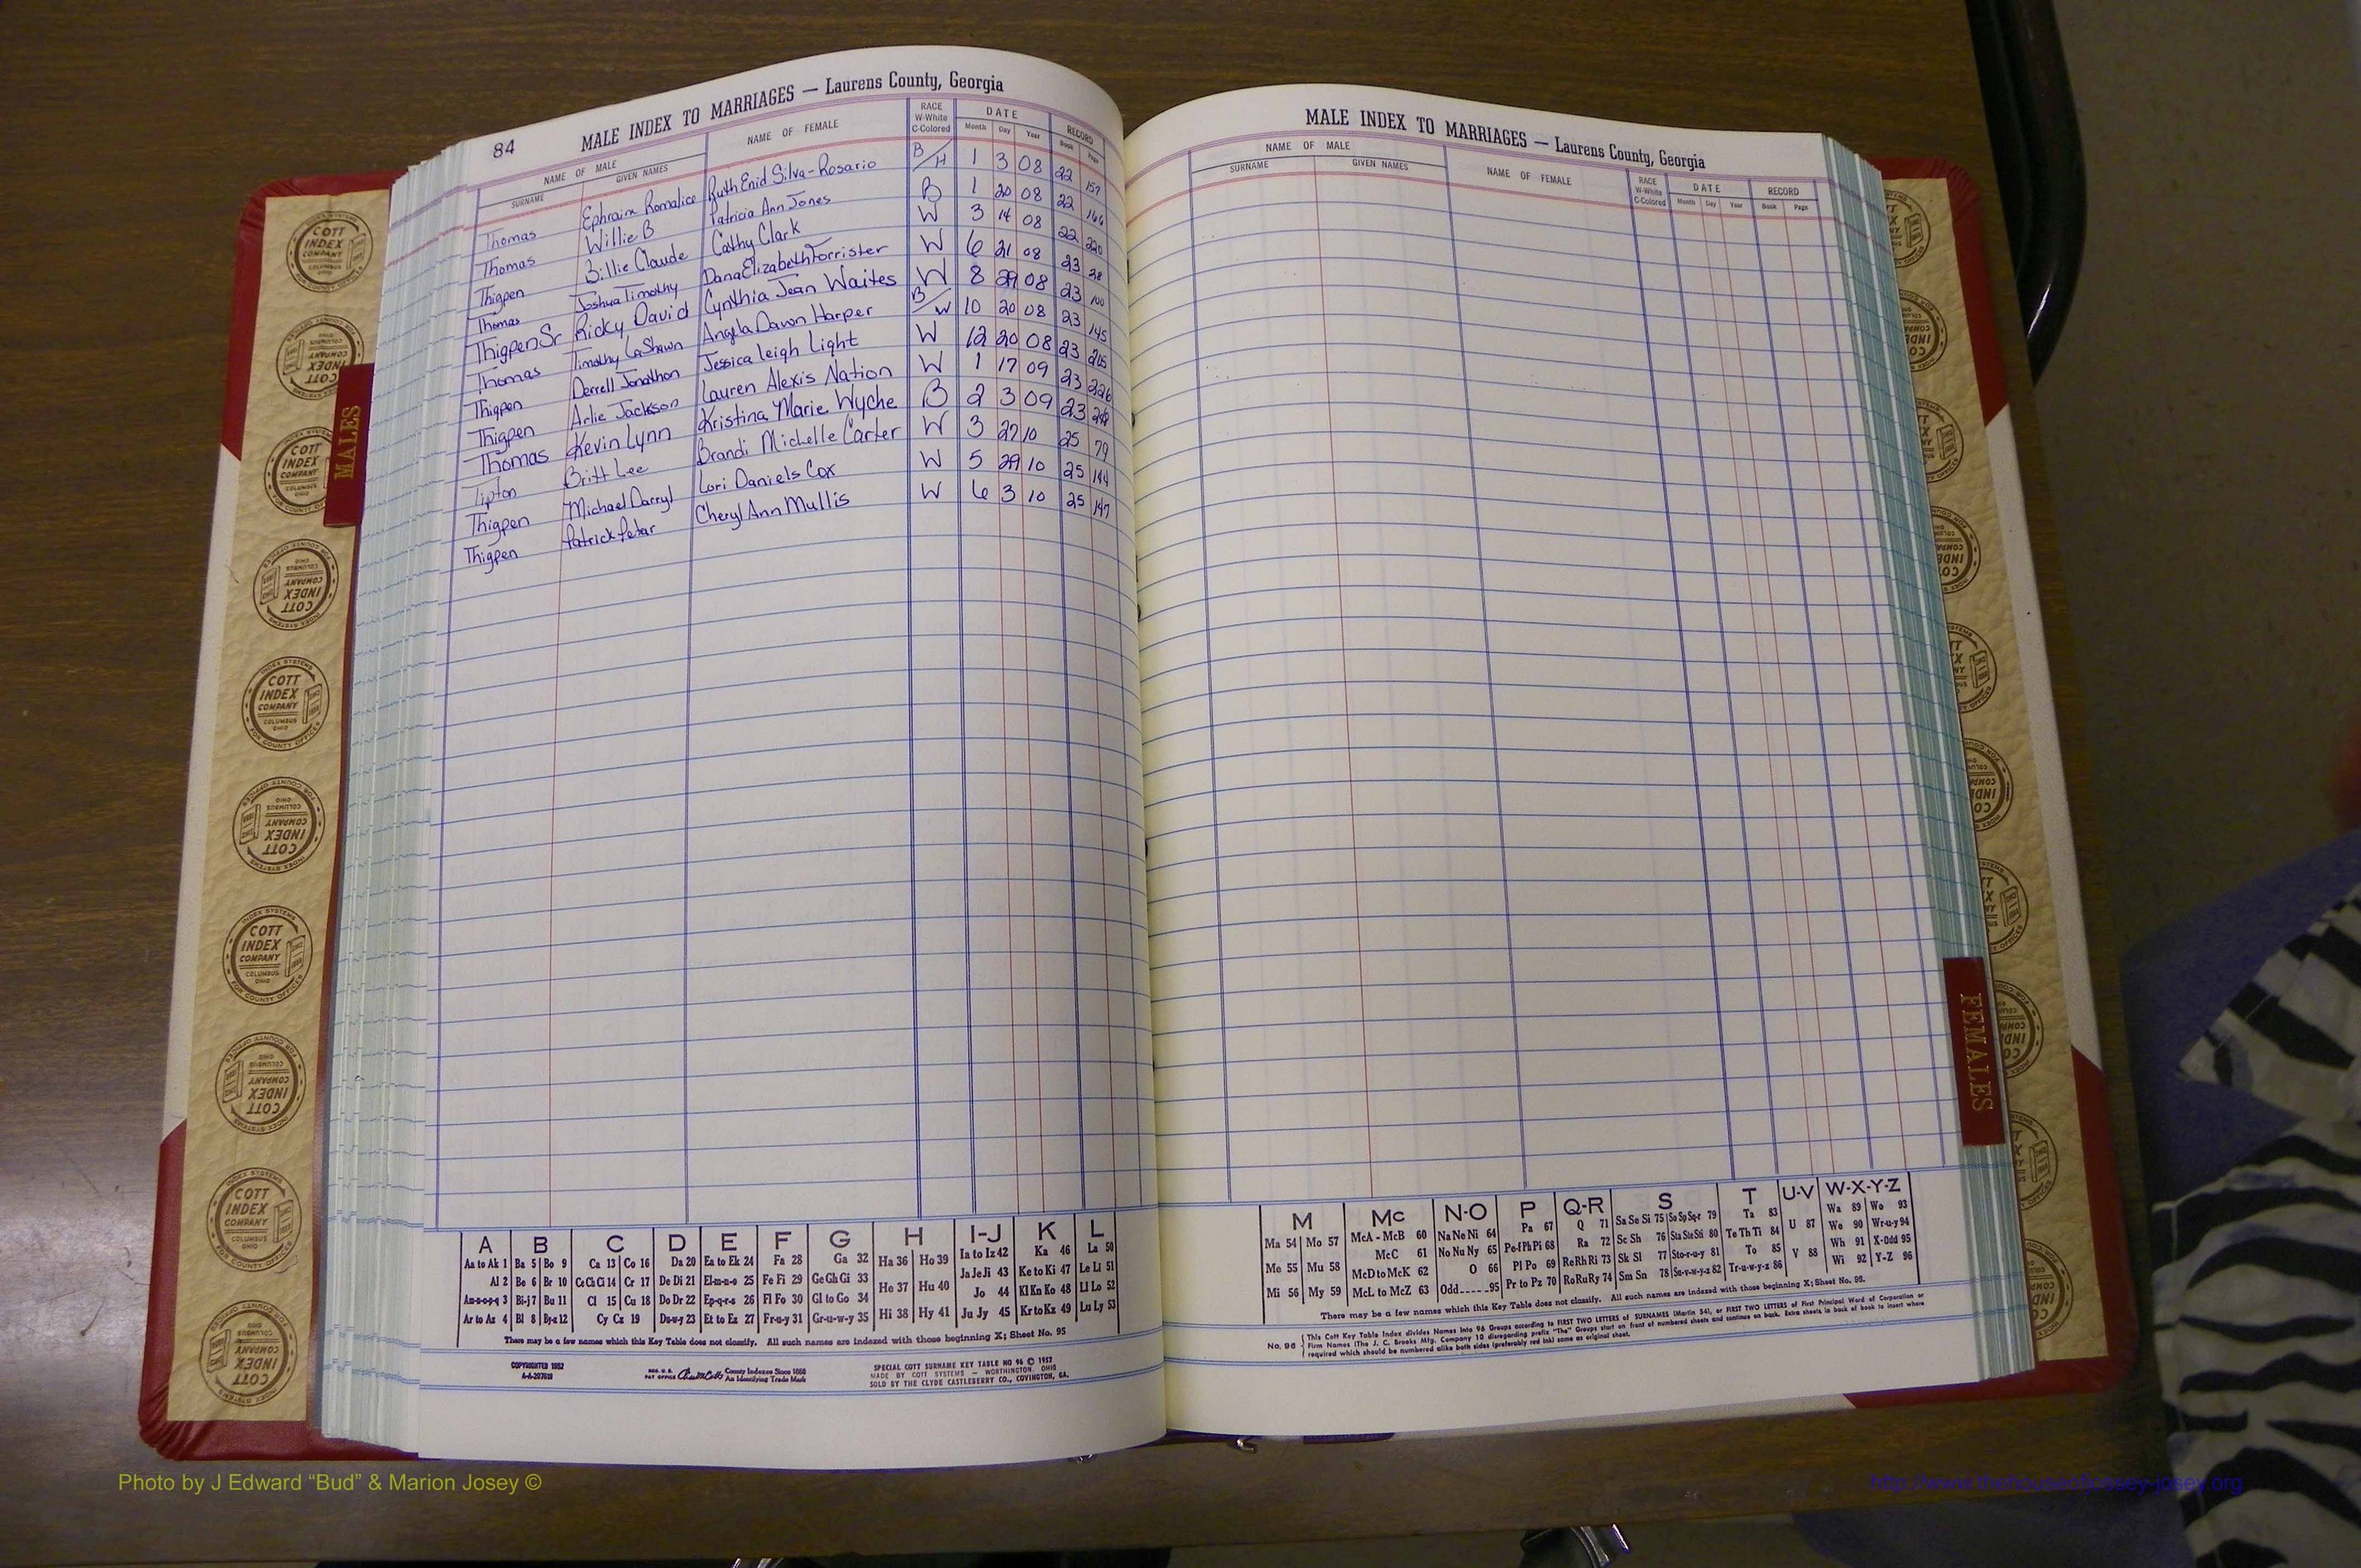 84
MALE INDEX TO MARRIAGES — Laurens County, Georgia
NAME OF MALE
SURNAME GIVEN NAMES NAME OF FEMALE RACE W-White C-Colored DATE Month Day Year RECORD Book Page
Thomas Ephraim Romalice Ruth Enid Silva-Rosario B/H 1 3 08 22 157
Thomas Willie B Patricia Ann Jones B 1 20 08 22 166
Thigpen Billie Claude Cathy Clark W 3 14 08 22 220
Thomas Joshua Timothy Dana Elizabeth Forrister W 6 21 08 23 28
Thigpen Sr Ricky David Cynthia Jean Waites W 8 29 08 23 100
Thomas Timothy LaShawn Angela Dawn Harper B/W 10 20 08 23 145
Thigpen Derrell Jonathon Jessica Leigh Light W 12 20 08 23 205
Thigpen Arlie Jackson Lauren Alexis Nation W 1 17 09 23 226
Thomas Kevin Lynn Kristina Marie Wyche B 2 3 09 23
Tipton Britt Lee Brandi Michelle Carter W 3 27 10 25 79
Thigpen Michael Darryl Lori Daniels Cox W 5 29 10 25 144
Thigpen Patrick Petar Cheryl Ann Mullis W 6 3 10 25 147
A B C D E F G H I-J K L
Aa to Ak 1 Ba 5 Bo 9 Ca 13 Co 16 Da 20 Ea to Ek 24 Fa 28 Ga 32 Ha 36 Ho 39 Ia to Iz 42 Ka 46 La 50
Al 2 Be 6 Br 10 Ce Ch Ci 14 Cr 17 De Di 21 El-m-n-o 25 Fe Fi 29 Ge Gh Gi 33 He 37 Hu 40 Ja Je Ji 43 Ke to Ki 47 Le Li 51
Am-n-o-p-q 3 Bi-j 7 Bu 11 Cl 15 Cu 18 Do Dr 22 Ep-q-r-s 26 Fl Fo 30 Gl to Go 34 Hi 38 Hy 41 Jo 44 Kl Kn Ko 48 Ll Lo 52
Ar to Az 4 Bl 8 By-z 12 Cy Cz 19 Du-w-y 23 Et to Ez 27 Fr-u-y 31 Gr-u-w-y 35 Ju Jy 45 Kr to Kz 49 Lu Ly 53
There may be a few names which this Key Table does not classify. All such names are indexed with those beginning X; Sheet No. 95
COPYRIGHTED 1952
A-A-207619
REG. U.S. PAT OFFICE County Indexes Since 1888
An Identifying Trade Mark
SPECIAL COTT SURNAME KEY TABLE NO 96 © 1952
MADE BY COTT SYSTEMS — WORTHINGTON, OHIO
SOLD BY THE CLYDE CASTLEBERRY CO., COVINGTON, GA.
MALE INDEX TO MARRIAGES — Laurens County, Georgia
NAME OF MALE
SURNAME GIVEN NAMES NAME OF FEMALE RACE W-White C-Colored DATE Month Day Year RECORD Book Page
M Mc N-O P Q-R S T U-V W-X-Y-Z
Ma 54 Mo 57 McA - McB 60 Na Ne Ni 64 Pa 67 Q 71 Sa Se Si 75 So Sp Sq-r 79 Ta 83 U 87 Wa 89 Wo 93
Me 55 Mu 58 McC 61 No Nu Ny 65 Pe-f Ph Pi 68 Ra 72 Sc Sh 76 Sta Ste Sti 80 Te Th Ti 84 V 88 We 90 Wr-u-y 94
Mi 56 My 59 McD to McK 62 O 66 Pl Po 69 Re Rh Ri 73 Sk Sl 77 Sto-r-u-y 81 To 85 Wh 91 X-Odd 95
McL to McZ 63 Odd 95 Pr to Pz 70 Ro Ru Ry 74 Sm Sn 78 Su-v-w-y-z 82 Tr-u-w-y-z 86 Wi 92 Y-Z 96
There may be a few names which this Key Table does not classify. All such names are indexed with those beginning X; Sheet No. 95.
No. 96 This Cott Key Table Index divides Names into 96 Groups according to FIRST TWO LETTERS of SURNAMES (Martin 54), or FIRST TWO LETTERS of First Principal Word of Corporation or
Firm Names (The J. C. Brooks Mfg. Company 10 disregarding prefix "The" Groups start on front of numbered sheets and continue on back. Extra sheets in back of book to insert where
required which should be numbered alike both sides (preferably red ink) same as original sheet.
MALES
FEMALES
COTT INDEX COMPANY
COLUMBUS OHIO
INDEX SYSTEMS FOR COUNTY OFFICES
Photo by J Edward “Bud” & Marion Josey ©